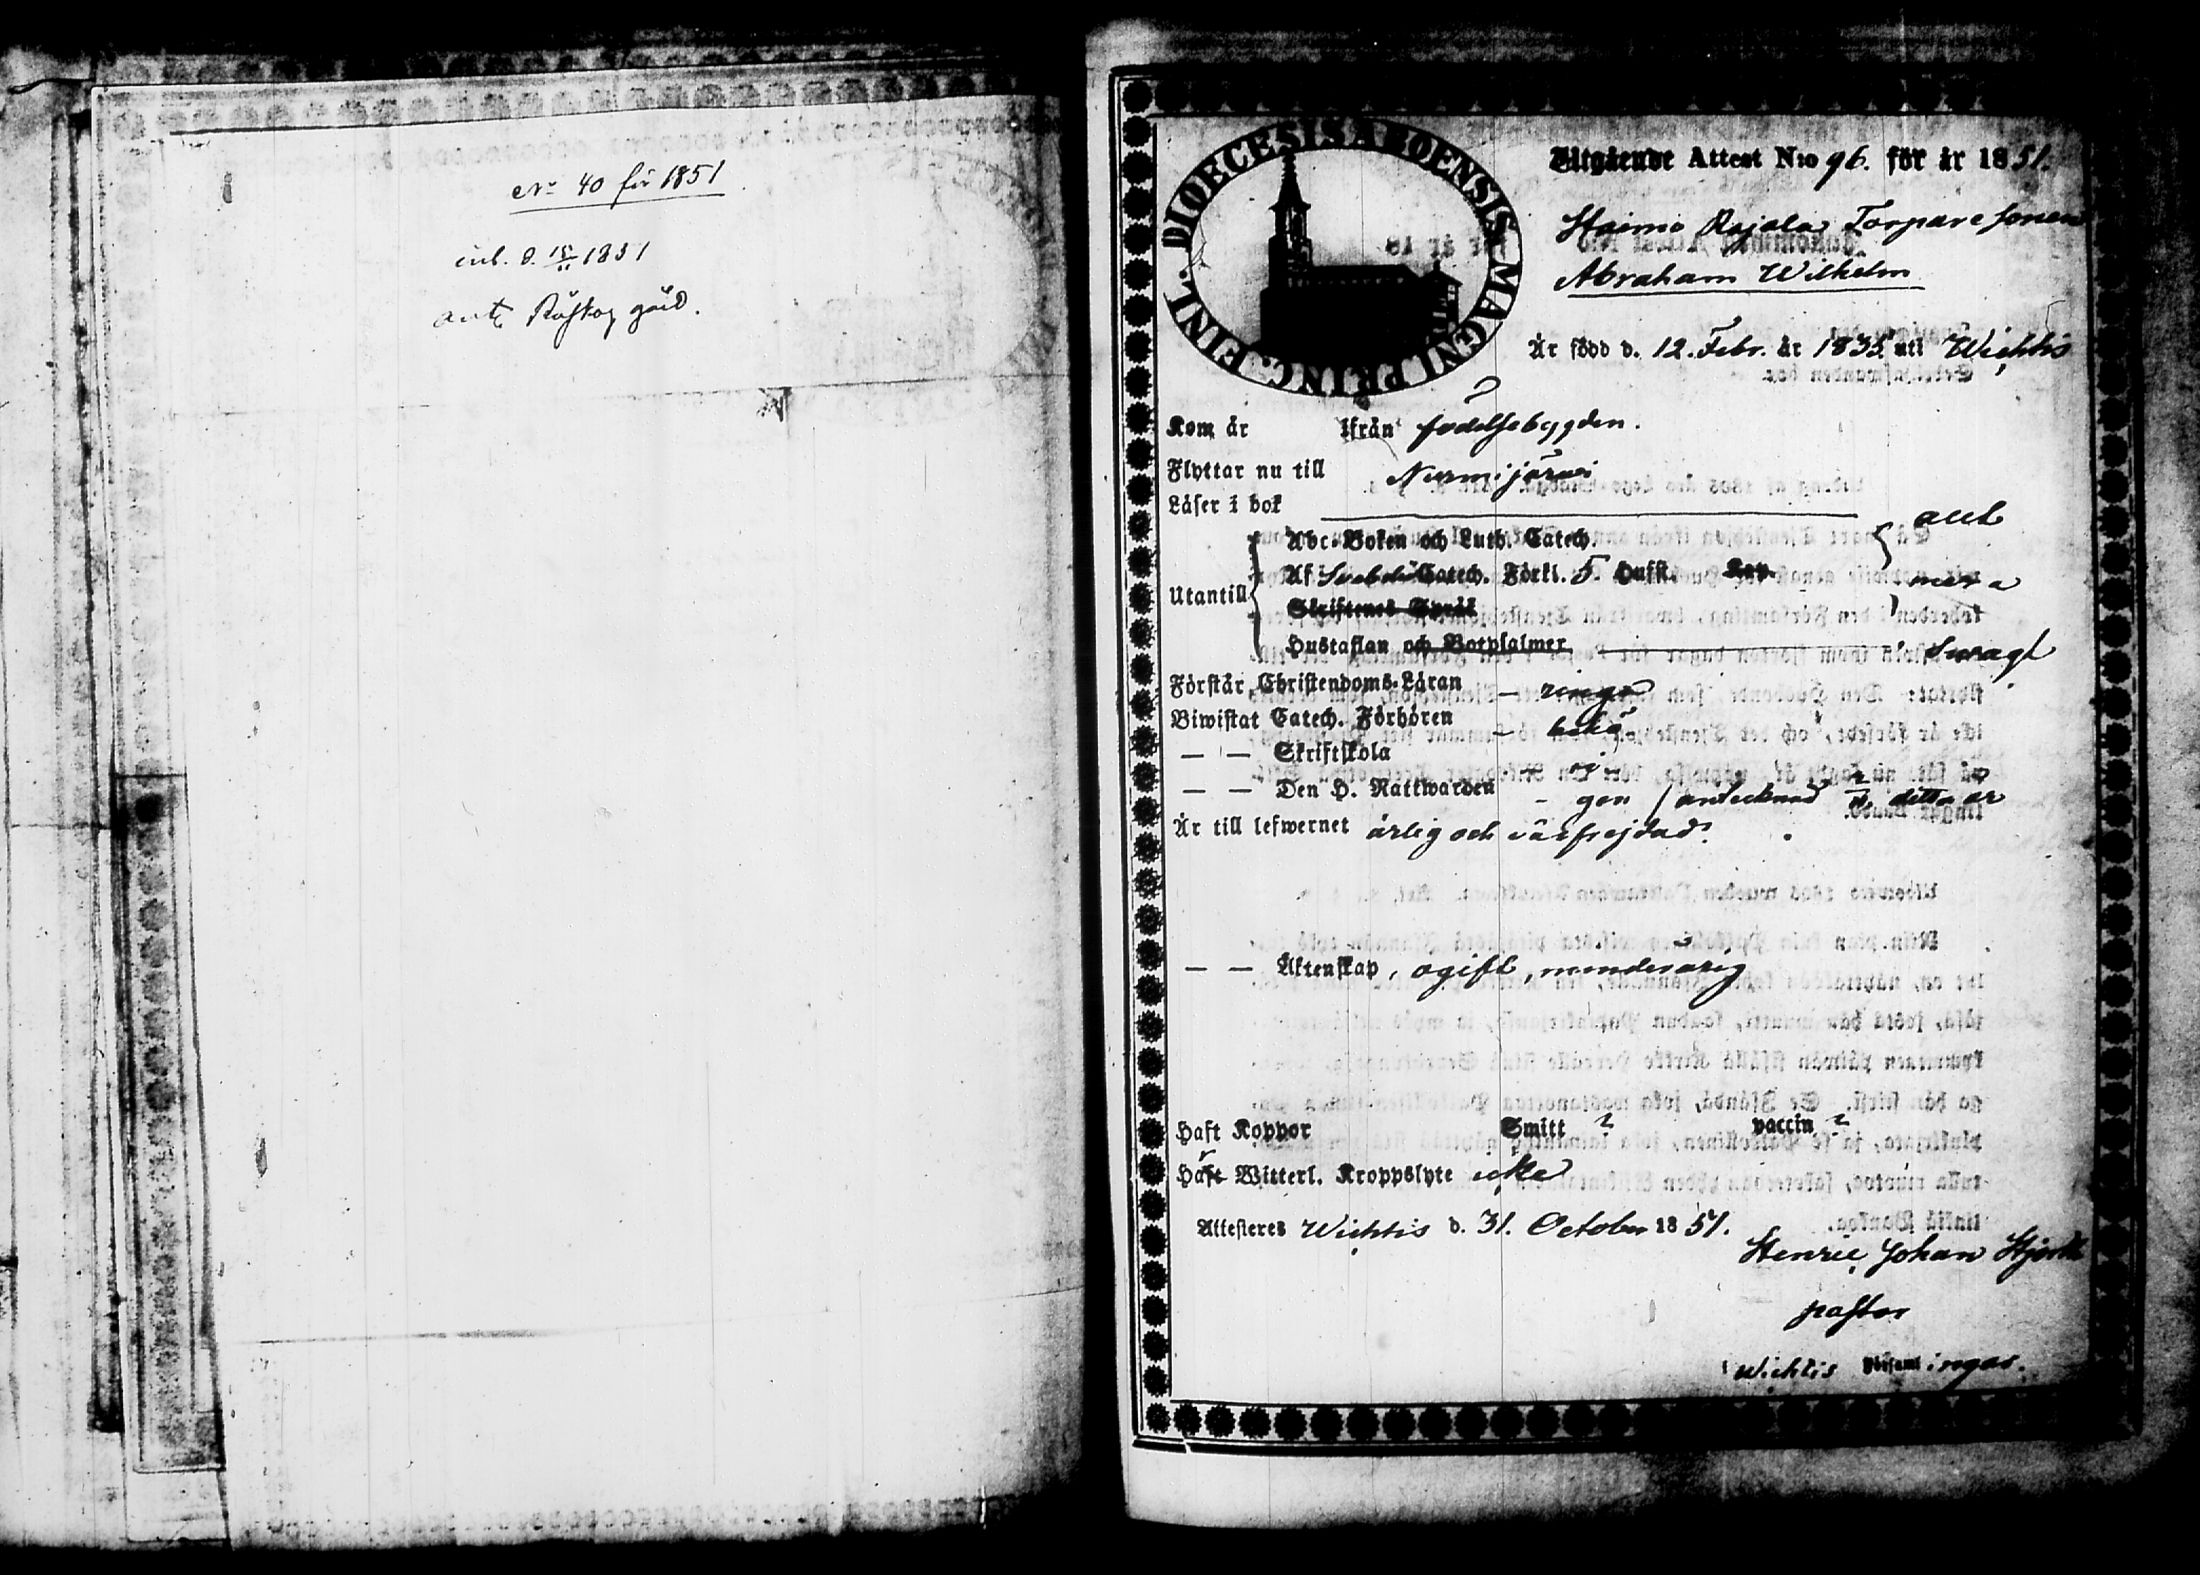 No 40 för 1851
inl. d. 15/11 1851
ant. Röskog gård.
DIOECESIS ABOENSIS MAGNI PRINC. FINL.
Utgående Attest N:o 96. för år 1851.
Haimo Ojala Torpare sonen
Abraham Wilhelm
Är född d. 12. Febr. år 1835 uti Wichtis
Kom år ifrån födelsebygden.
Flyttar nu till Nurmijärvi
Läser i bok
Utantill
Abc-Boken och Luth. Catech. allt
Af Svebelii Catech. Förkl. 5. Hufst. Kap. mera
Skriftenes Språk
Hustaflan och Botpsalmer svagt
Förstår Christendoms-Läran – ringa
Biwistat Catech. Förhören –
— — Skriftskola – ej
— — Den H. Nattwarden – gen antecknad detta år
Är till lefwernet ärlig och välfrejdad.
— — Äktenskap, ogift, minderårig
Haft Koppor Smitt ? vaccin ?
Har Witterl. Kroppslyte icke
Attesteres Wichtis d. 31. October 1851.
Henric Johan Hjorth
pastor
i Wichtis Församlingar.